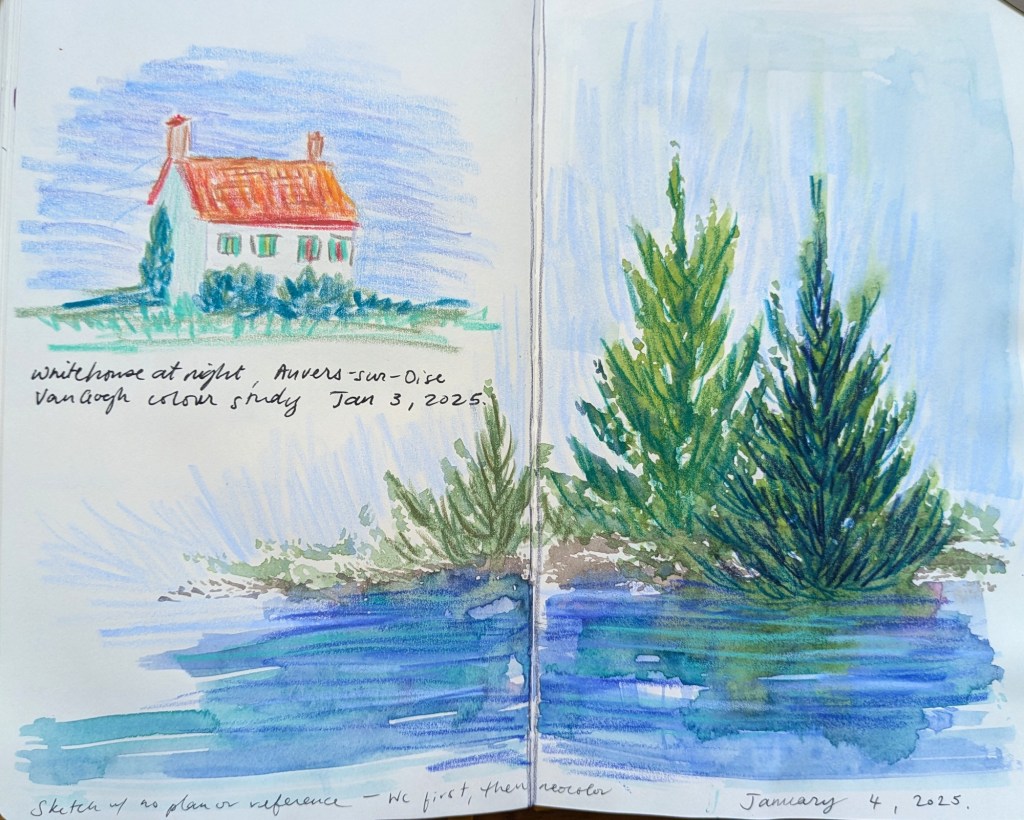 Whitehouse at night, Auvers-sur-Oise
Van Gogh colour study Jan 3, 2025.
Sketch w/ no plan or reference – WC first, then neocolor
January 4, 2025.